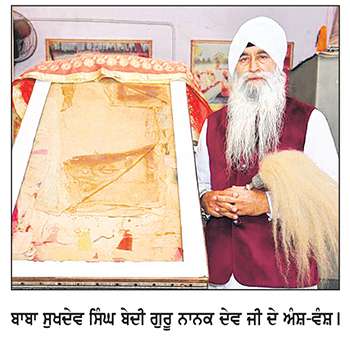 ਬਾਬਾ ਸੁਖਦੇਵ ਸਿੰਘ ਬੇਦੀ ਗੁਰੂ ਨਾਨਕ ਦੇਵ ਜੀ ਦੇ ਅੰਸ਼-ਵੰਸ਼।